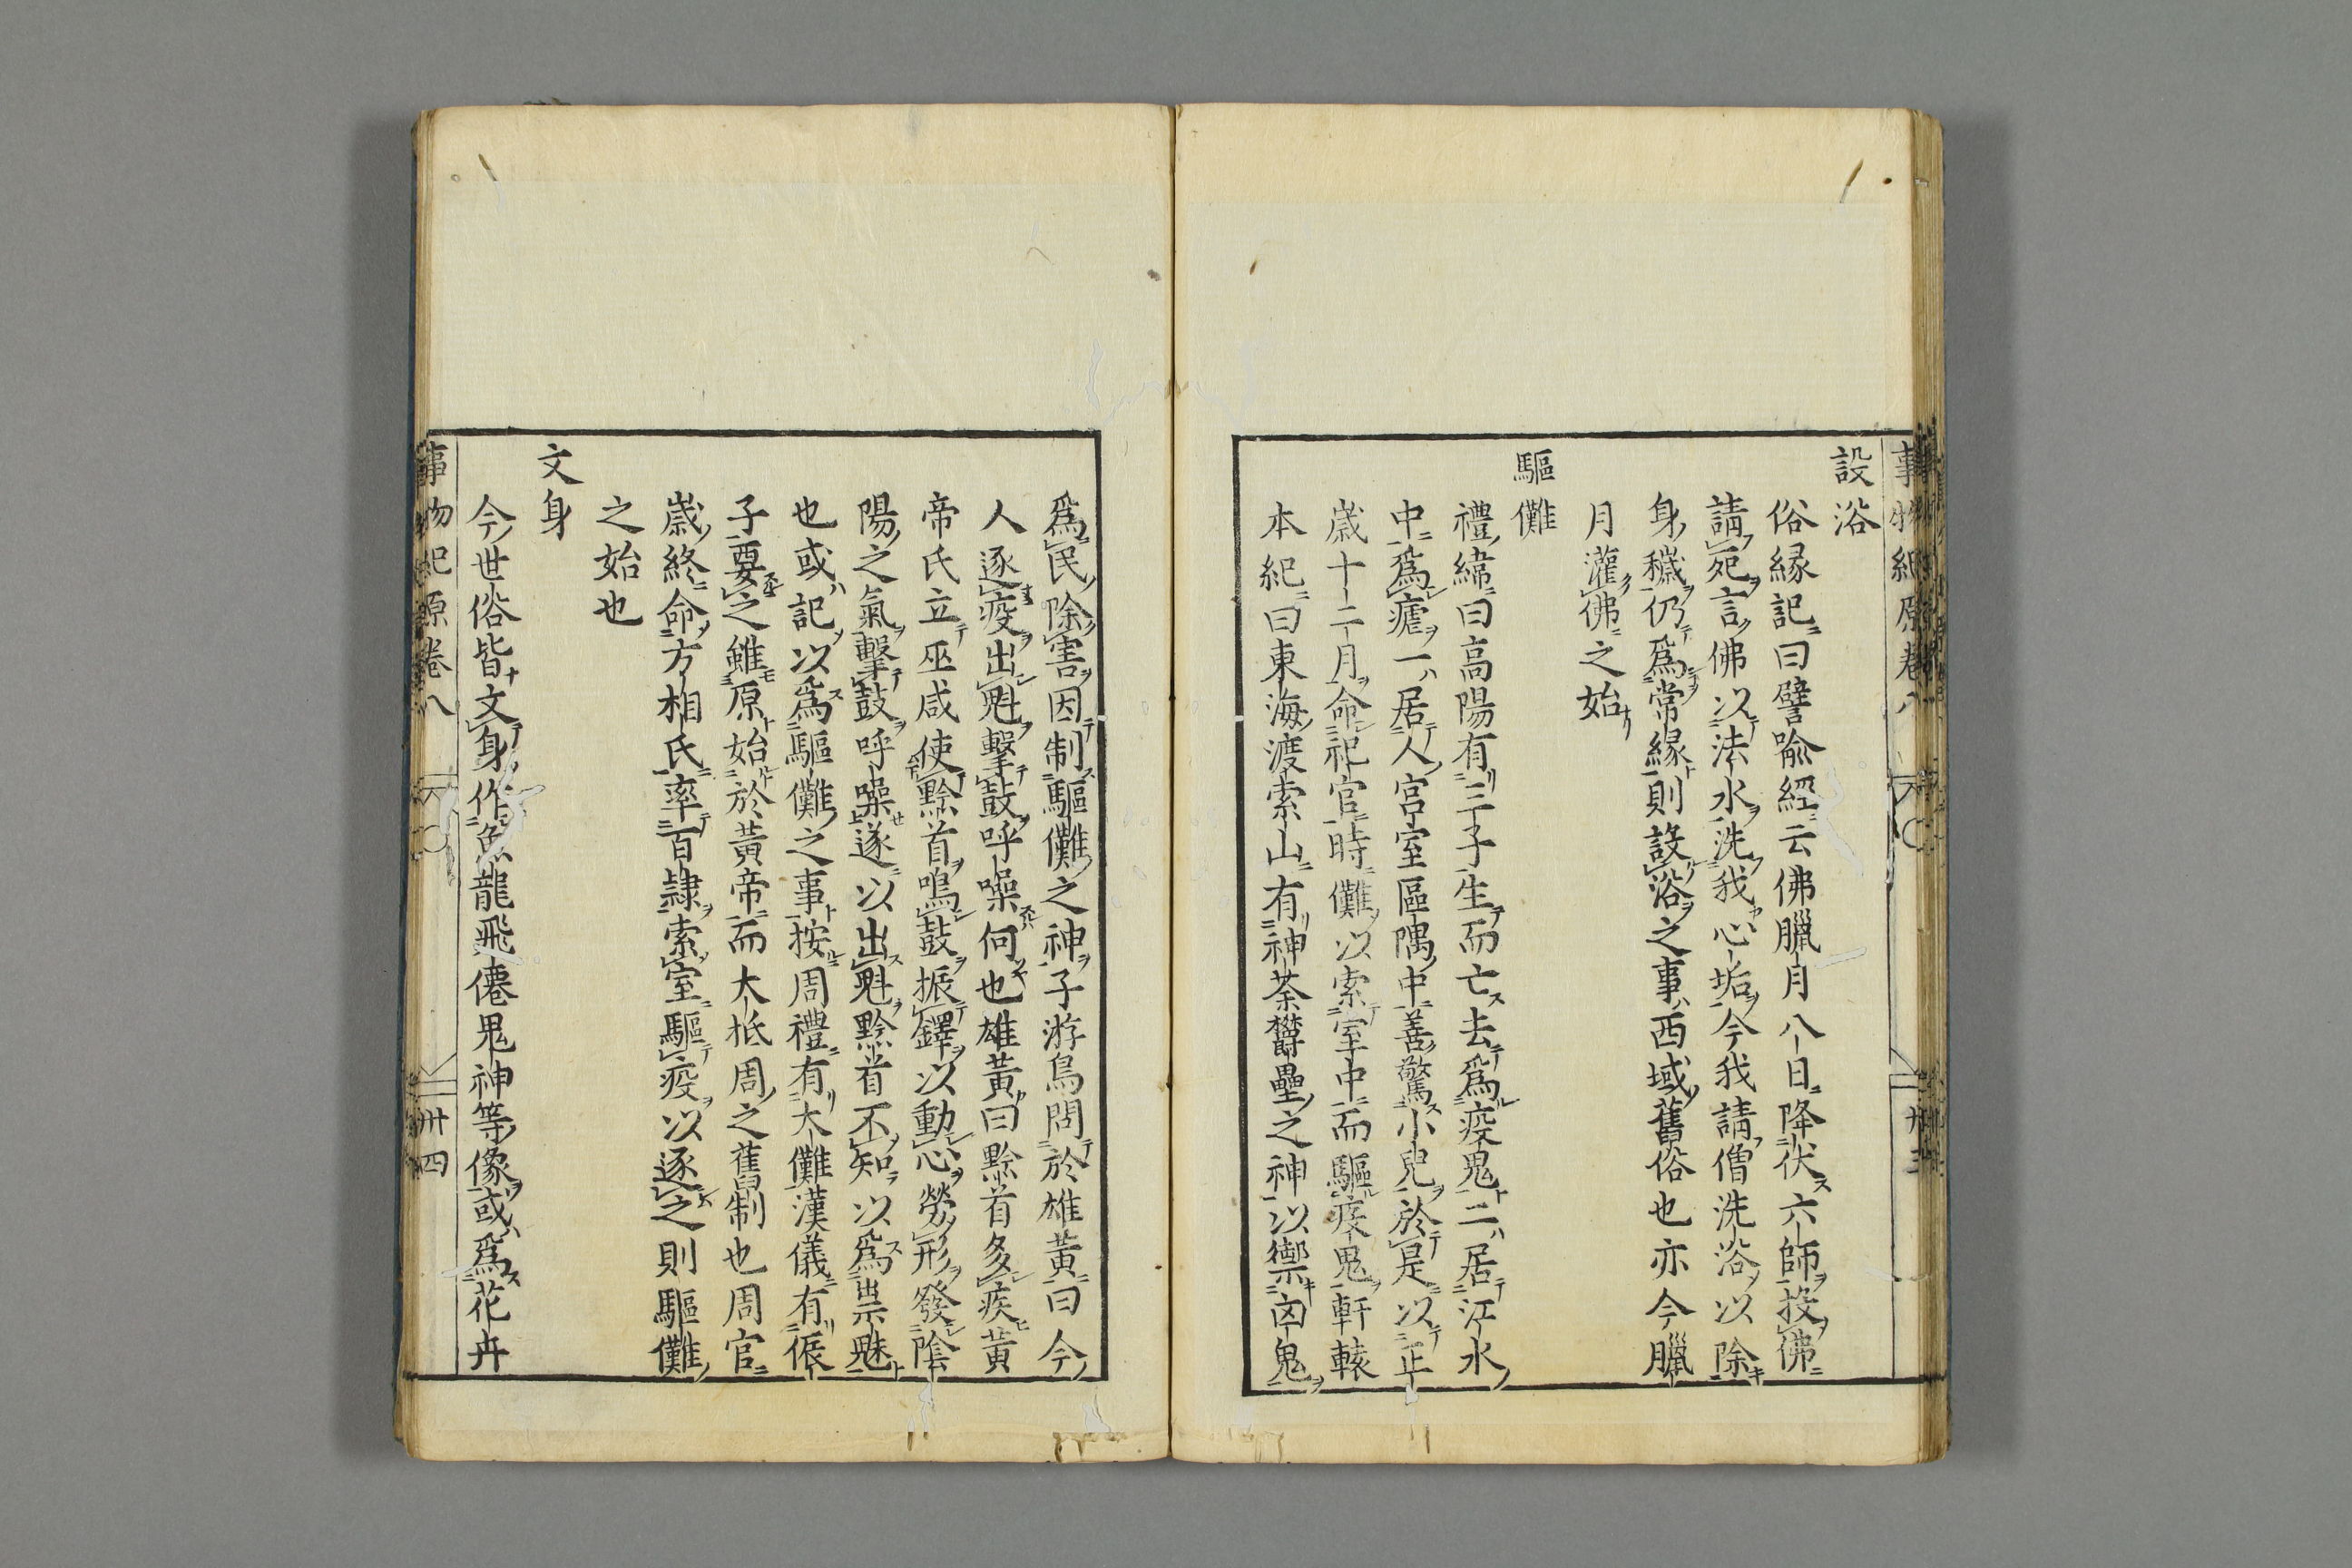 事物紀原卷八
設浴
俗縁記曰譬喩經云佛臘月八日降伏六師投佛
請死言佛以法水洗我心垢今我請僧洗浴以除
身穢仍爲常縁則設浴之事西域舊俗也亦今臘
月灌佛之始
驅儺
禮緯曰高陽有三子生而亡去爲疫鬼二居江水
中爲瘧一居人宮室區隅中善驚小兒於是以正
歳十二月命祀官時儺以索室中而驅疫鬼軒轅
本紀曰東海渡索山有神荼欝壘之神以禦凶鬼
爲民除害因制驅儺之神子游鳥問於雄黃曰今
人逐疫出魁擊鼓呼噪何也雄黃曰黔首多疾黃
帝氏立巫咸使黔首鳴鼓振鐸以動心勞形發陰
陽之氣擊鼓呼噪遂以出魁黔首不知以爲祟魅
也或記以爲驅儺之事按周禮有大儺漢儀有侲
子要之雖原始於黃帝而大抵周之舊制也周官
歳終命方相氏率百隷索室驅疫以逐之則驅儺
之始也
文身
今世俗皆文身作魚龍飛僊鬼神等像或爲花卉
事物紀原卷八 卅四